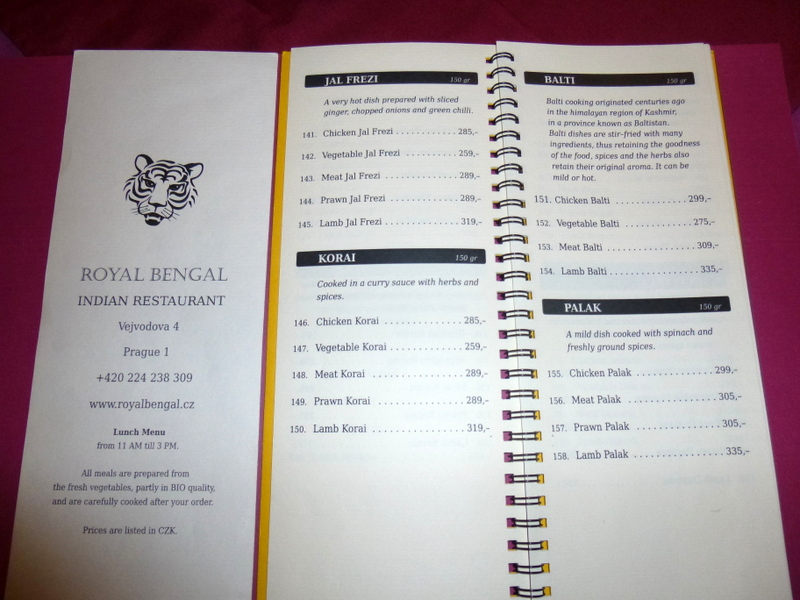 ROYAL BENGAL
INDIAN RESTAURANT
Vejvodova 4
Prague 1
+420 224 238 309
www.royalbengal.cz
Lunch Menu
from 11 AM till 3 PM.
All meals are prepared from
the fresh vegetables, partly in BIO quality,
and are carefully cooked after your order.
Prices are listed in CZK.
JAL FREZI 150 gr
A very hot dish prepared with sliced
ginger, chopped onions and green chilli.
141. Chicken Jal Frezi . . . . . . . . . . . 285,-
142. Vegetable Jal Frezi . . . . . . . . . . 259,-
143. Meat Jal Frezi . . . . . . . . . . . . . . 289,-
144. Prawn Jal Frezi . . . . . . . . . . . . . 289,-
145. Lamb Jal Frezi . . . . . . . . . . . . . . 319,-
KORAI 150 gr
Cooked in a curry sauce with herbs and
spices.
146. Chicken Korai . . . . . . . . . . . . . . . 285,-
147. Vegetable Korai . . . . . . . . . . . . . 259,-
148. Meat Korai . . . . . . . . . . . . . . . . . 289,-
149. Prawn Korai . . . . . . . . . . . . . . . . 289,-
150. Lamb Korai . . . . . . . . . . . . . . . . . 319,-
BALTI 150 gr
Balti cooking originated centuries ago
in the himalayan region of Kashmir,
in a province known as Baltistan.
Balti dishes are stir-fried with many
ingredients, thus retaining the goodness
of the food, spices and the herbs also
retain their original aroma. It can be
mild or hot.
151. Chicken Balti . . . . . . . . . . . . . . . 299,-
152. Vegetable Balti . . . . . . . . . . . . . . 275,-
153. Meat Balti . . . . . . . . . . . . . . . . . . 309,-
154. Lamb Balti . . . . . . . . . . . . . . . . . 335,-
PALAK 150 gr
A mild dish cooked with spinach and
freshly ground spices.
155. Chicken Palak . . . . . . . . . . . . . . . 299,-
156. Meat Palak . . . . . . . . . . . . . . . . . 305,-
157. Prawn Palak . . . . . . . . . . . . . . . . 305,-
158. Lamb Palak . . . . . . . . . . . . . . . . . 335,-